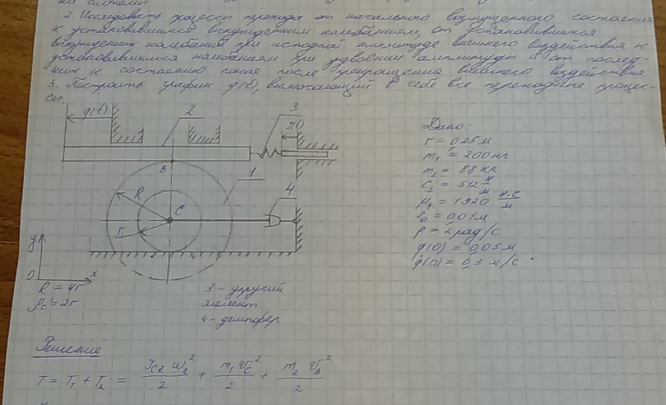 2. Исследовать процесс перехода от начального возмущенного состояния
к установившимся вынужденным колебаниям, от установившихся
вынужденных колебаний при исходной амплитуде внешнего воздействия к
установившимся колебаниям при удвоении амплитуды и от послед-
них к состоянию покоя после прекращения внешнего воздействия
3. Построить график q(t), включающий в себя все переходные процес-
сы.
q(t)
2
3
B
1
R
C
4
r
y
O
x
R = 4r
ρc = 2r
3 - упругий
элемент
4 - демпфер
Дано:
r = 0,25 м
m₁ = 200 кг
m₂ = 88 кг
c₃ = 512 н/м
μ₄ = 1920 н·с/м
s₀ = 0,01 м
p = 2 рад/с
q(0) = 0,05 м
q̇(0) = 0,3 м/с
Решение
T = T₁ + T₂ =